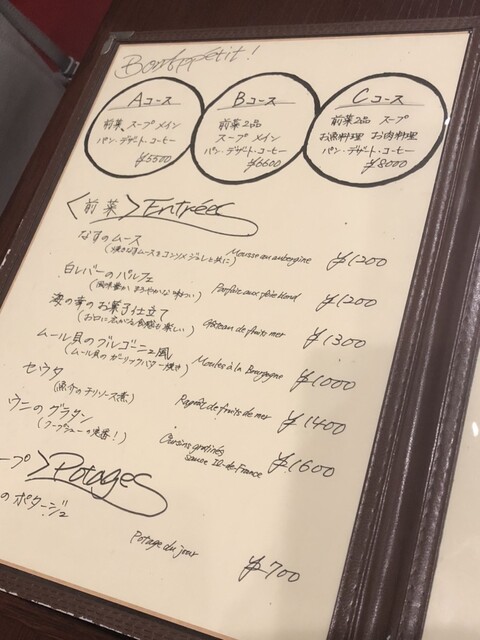 Bon Appétit!
Aコース
前菜、スープ メイン
パン・デザート・コーヒー
¥5500
Bコース
前菜2品
スープ メイン
パン・デザート・コーヒー
¥6600
Cコース
前菜2品 スープ
お魚料理 お肉料理
パン・デザート・コーヒー
¥8000
<前菜> Entrées
なすのムース Mousse au aubergine ¥1200
(焼きなすムースをコンソメジュレと共に)
白レバーのパルフェ Parfait aux foie blond ¥1200
(風味豊か まろやかな味わい)
海の幸のお菓子仕立て Gâteau de fruits mer ¥1300
(お口に広がる食感も楽しい)
ムール貝のブルゴーニュ風 Moules à la Bourgogne ¥1000
(ムール貝のガーリックバター焼き)
セウタ Ragoût de fruits de mer ¥1400
(魚介のチリソース煮)
ウンのグラタン Oursins gratinés ¥1600
の定番!) sauce Ile-de-France
ープ> Potages
のポタージュ Potage du jour ¥700